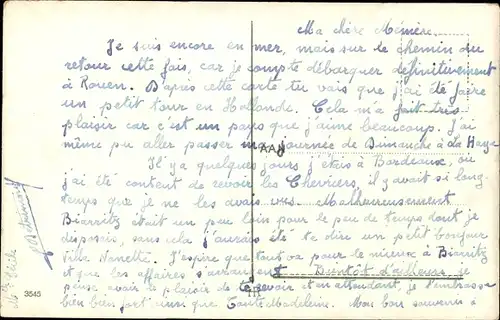 Ma chère Mémère.
Je suis encore en mer, mais sur le chemin du
retour cette fois, car je compte débarquer définitivement
à Rouen. D'après cette carte tu vois que j'ai été faire
un petit tour en Hollande. Cela m'a fait très
plaisir car c'est un pays que j'aime beaucoup. J'ai
même pu aller passer ma journée de Dimanche à la Haye
AAJ
Il y a quelques jours j'étais à Bordeaux, ou
j'ai été content de revoir les Cheviers, il y avait si long-
temps que je ne les avais vus. Malheureusement
Biarritz était un peu loin pour le peu de temps dont je
disposais, sans cela j'aurais été te dire un petit bonjour
Villa Nanette. J'espère que tout va pour le mieux à Biarritz
et que les affaires s'arrangent. Bientôt d'ailleurs, je
pense avoir le plaisir de te revoir et en attendant, je t'embrasse
bien bien fort ainsi que Tante Madeleine. Mon bon souvenir à
3545